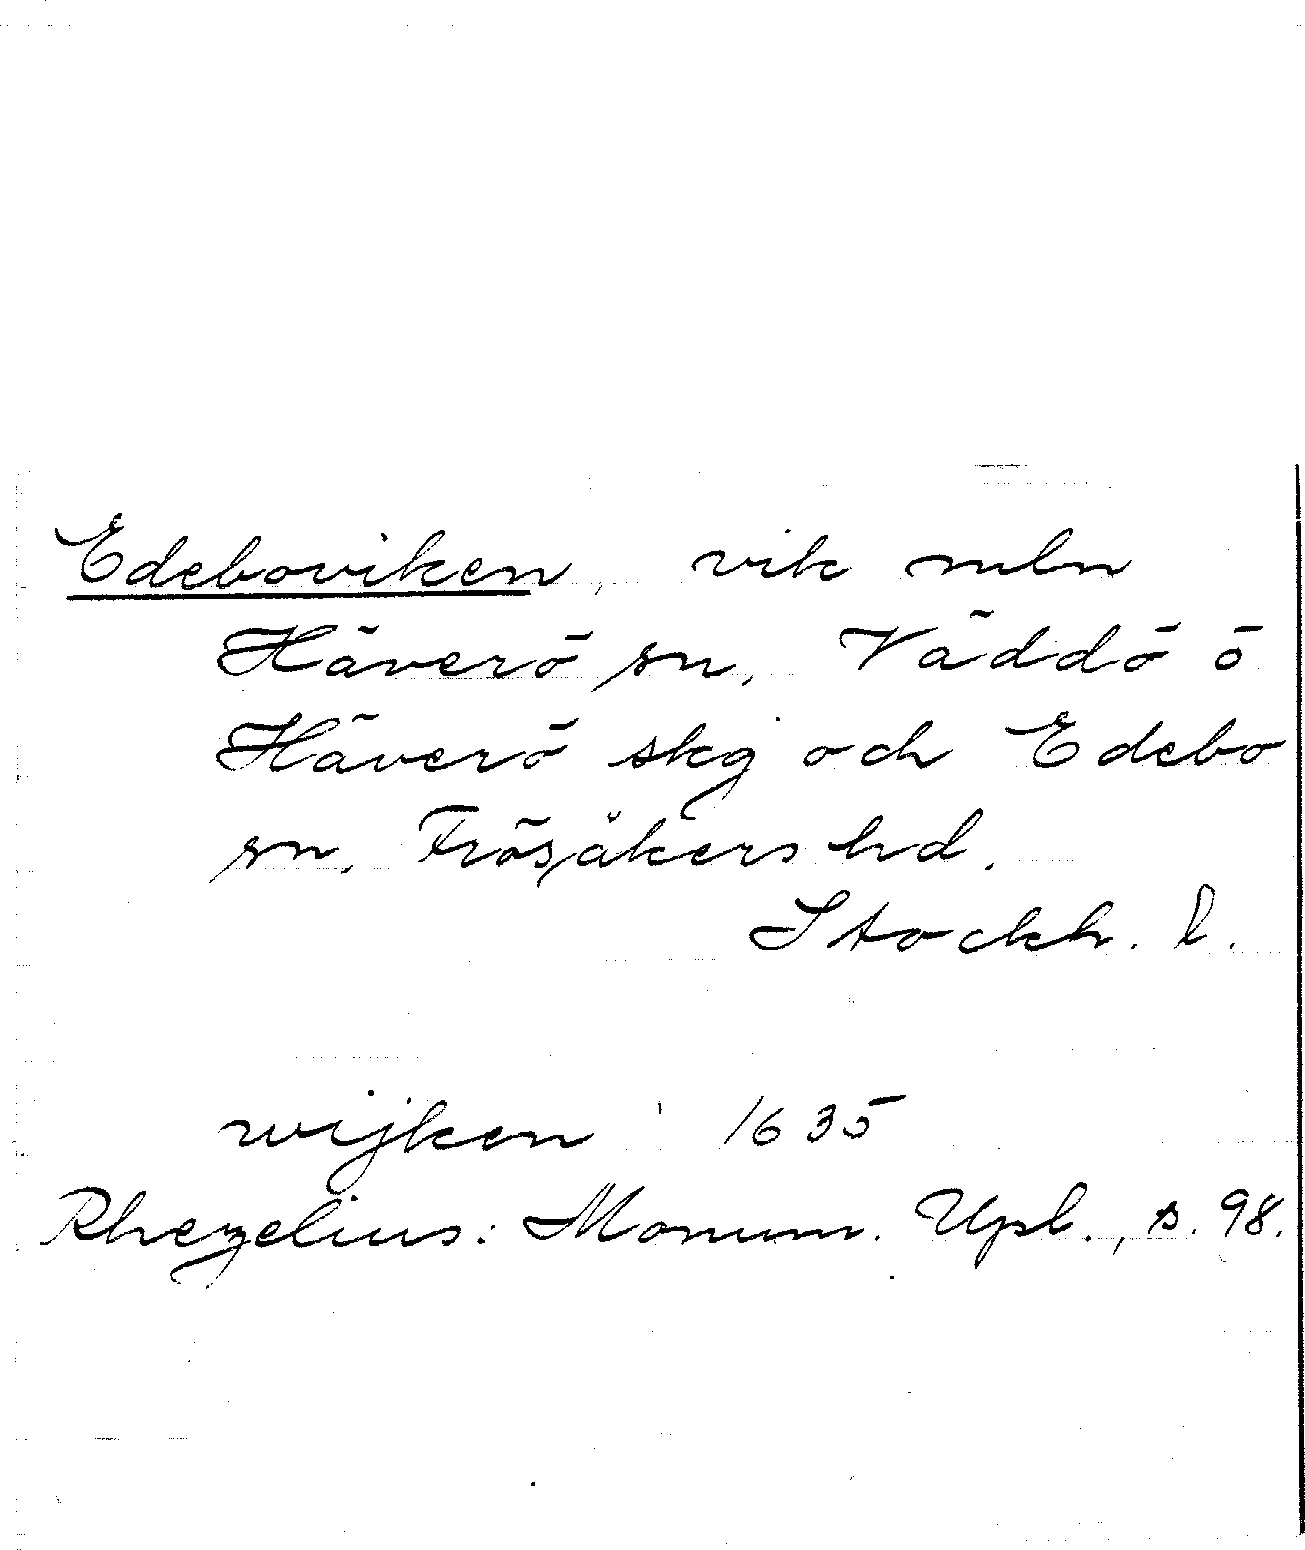 Edeboviken, vik mln
Häverö sn, Väddö o
Häverö skg och Edebo
sn, Frösåkers hd.
Stockh. l.
wijken 1635
Rhezelius: Monum. Upl., s. 98.